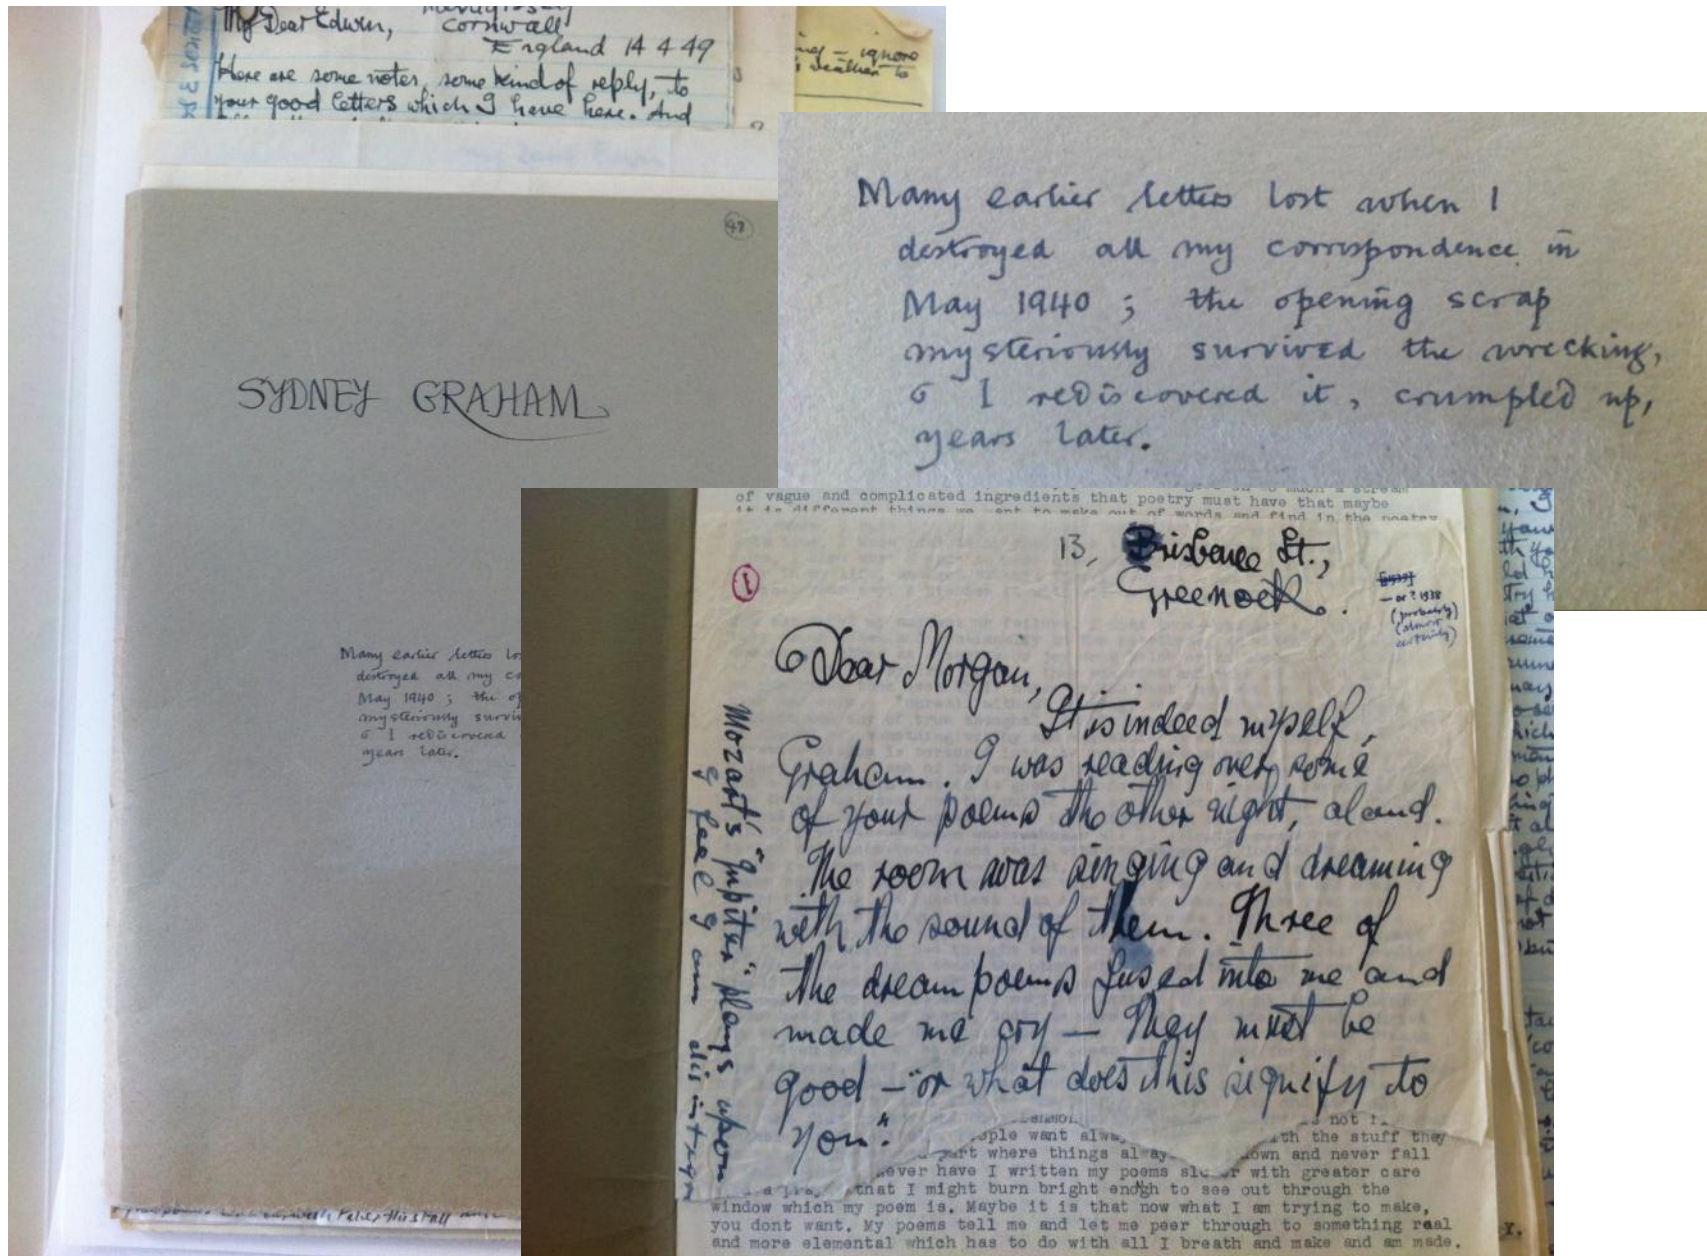 My Dear Edwin,
Cornwall
England 14 4 49
Here are some notes, some kind of reply, to
your good letters which I have here. And
ignore
weather to
48
SYDNEY GRAHAM
Many earlier letters
destroyed all my
May 1940 ; the
mysteriously
& I rediscovered
years later.
Many earlier letters lost when I
destroyed all my correspondence in
May 1940 ; the opening scrap
mysteriously survived the wrecking,
& I rediscovered it, crumpled up,
years later.
of vague and complicated ingredients that poetry must have that maybe
it is different things we want to make out of words and find in the poetry
13, Brisbane St.,
Greenock.
1
[1939]
— or ? 1938
(probably)
(almost
certainly)
Dear Morgan,
It is indeed myself,
Graham. I was reading over some
of your poems the other night, aloud.
The room was singing and dreaming
with the sound of them. Three of
the dream poems fused into me and
made me cry — They must be
good — "or what does this signify to
you".
Mozart's "Jupiter" plays upon
& I feel I am
not
people want the stuff they
part where things down and never fall
never have I written my poems with greater care
that I might burn bright enough to see out through the
window which my poem is. Maybe it is that now what I am trying to make,
you dont want. My poems tell me and let me peer through to something real
and more elemental which has to do with all I breath and make and am made.